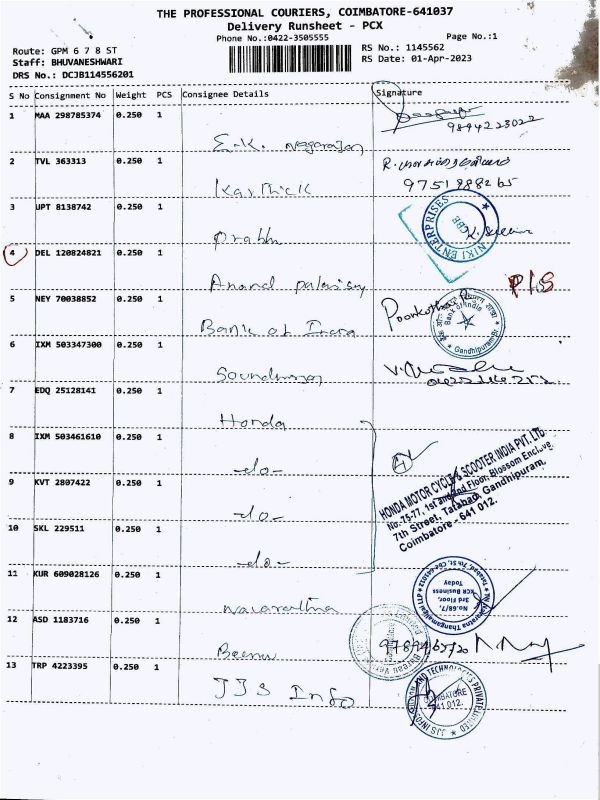 THE PROFESSIONAL COURIERS, COIMBATORE-641037
Delivery Runsheet - PCX
Phone No.:0422-3505555
Page No.:1
Route: GPM 6 7 8 ST
RS No.: 1145562
Staff: BHUVANESHWARI
RS Date: 01-Apr-2023
DRS No.: DCJB114556201
S No Consignment No Weight PCS Consignee Details Signature
1 MAA 298785374 0.250 1
9894223022
E.K. Nagarajan
2 TVL 363313 0.250 1
R.
9751888265
Karthick
3 UPT 8138742 0.250 1
NIKI ENTERPRISES CBE
Prabhu
4 DEL 120824821 0.250 1
P/S
Anand Palanisay
5 NEY 70038852 0.250 1
Bank of India
Gandhipuram Br
Bank of India
6 IXM 503347300 0.250 1
7 EDQ 25128141 0.250 1
Honda
8 IXM 503461610 0.250 1
4
-do-
HONDA MOTOR CYCLE & SCOOTER INDIA PVT. LTD.
No.75-77, 1st and 2nd Floor, Blossom Enclave
7th Street, Tatabad, Gandhipuram,
Coimbatore - 641 012.
9 KVT 2807422 0.250 1
-do-
10 SKL 229511 0.250 1
-do-
11 KUR 609028126 0.250 1
No.68/7,
3rd Floor,
KCR Business
Today
Navarathna
12 ASD 1183716 0.250 1
Beenu
13 TRP 4223395 0.250 1
COIMBATORE
641 012.
JJS Info